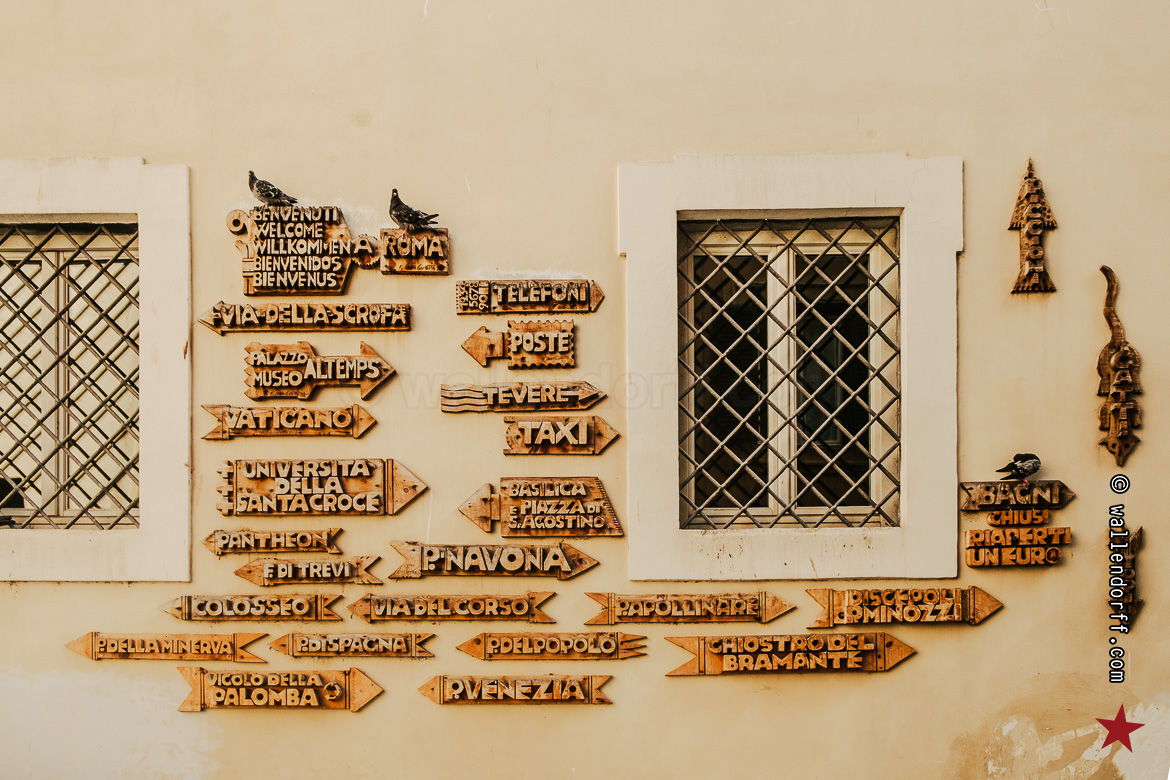 BENVENUTI
WELCOME
WILLKOMMEN
BIENVENIDOS
BIENVENUS
A
ROMA
VIA DELLA SCROFA
PALAZZO
MUSEO
ALTEMPS
VATICANO
UNIVERSITA
DELLA
SANTACROCE
PANTHEON
F. DI TREVI
COLOSSEO
VIA DEL CORSO
P. DELLA MINERVA
P. DI SPAGNA
VICOLO DELLA
PALOMBA
TELEFONI
POSTE
TEVERE
TAXI
BASILICA
E PIAZZA DI
S. AGOSTINO
P. NAVONA
P. APOLLINARE
P. DEL POPOLO
P. VENEZIA
DISCEPOLI
CHIOSTRO DEL
BRAMANTE
BAGNI
CHIUSI
RIAPERTI
UN EURO
© wallendorff.com
wallendorff.com